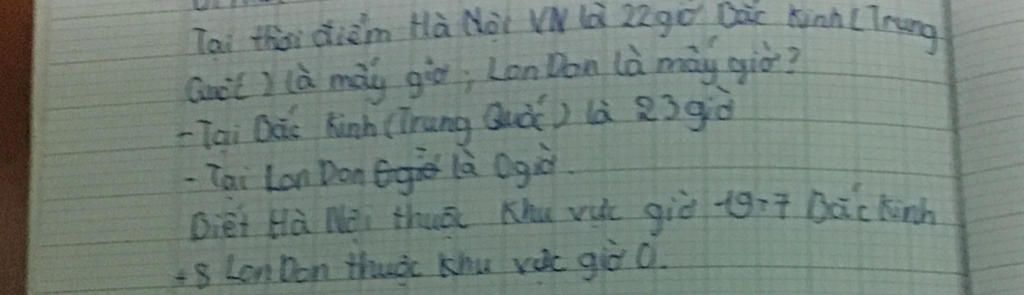 Tại thời điểm Hà Nội VN là 22 giờ Bắc Kinh (Trung
Quốc) là mấy giờ, Lon Don là mấy giờ?
- Tại Bắc Kinh (Trung Quốc) là 23 giờ
- Tại Lon Don là 0 giờ.
Biết Hà Nội thuộc khu vực giờ 7 Bắc Kinh
+8 Lon Don thuộc khu vực giờ 0.